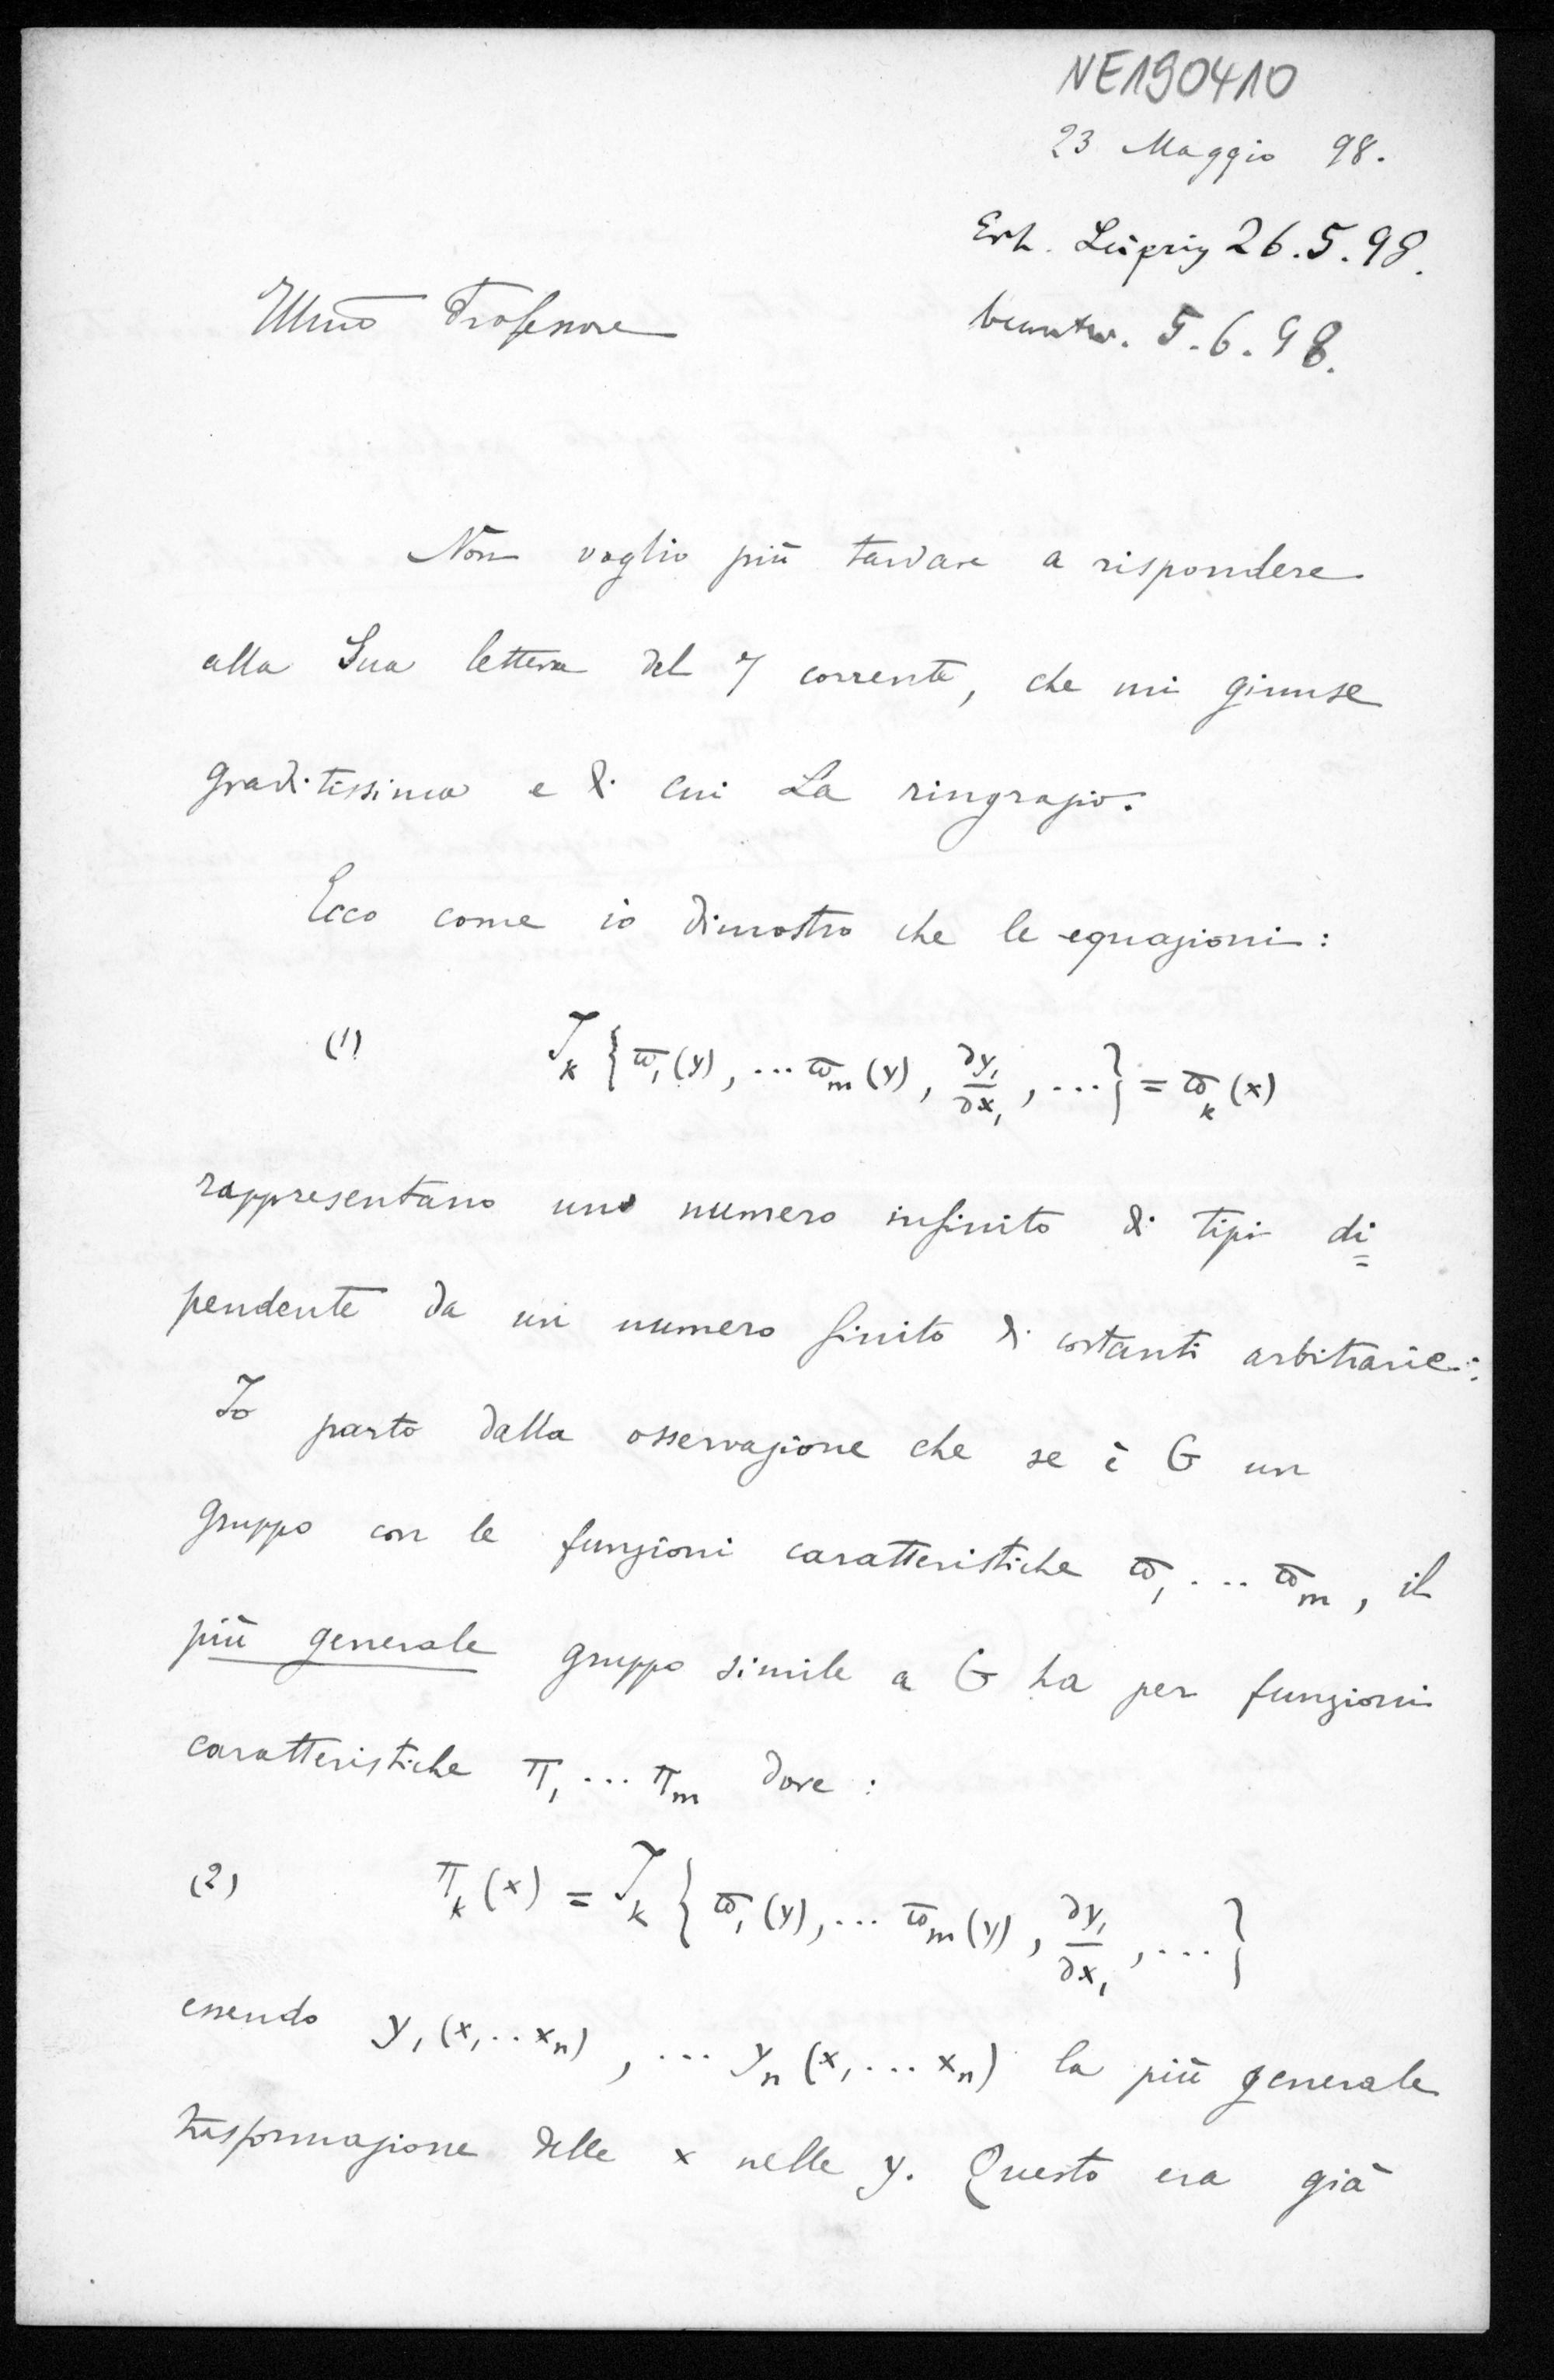 NE190410
23 Maggio 98.
Erh. Leipzig 26.5.98.
beantw. 5.6.98.
Illmo Professore
Non voglio più tardare a rispondere
alla Sua lettera del 7 corrente, che mi giunse
graditissima e di cui La ringrazio.
Ecco come io dimostro che le equazioni:
(1) J_k { ϖ_1(y), ... ϖ_m(y), ∂y_1/∂x_1, ... } = ϖ_k(x)
rappresentano uno numero infinito di tipi di=
pendente da un numero finito di costanti arbitrarie:
Io parto dalla osservazione che se è G un
gruppo con le funzioni caratteristiche ϖ_1 ... ϖ_m, il
più generale gruppo simile a G ha per funzioni
caratteristiche π_1 ... π_m dove:
(2) π_k(x) = J_k { ϖ_1(y), ... ϖ_m(y), ∂y_1/∂x_1, ... }
essendo y_1(x_1 .. x_n), ... y_n(x_1 ... x_n) la più generale
trasformazione delle x nelle y. Questo era già